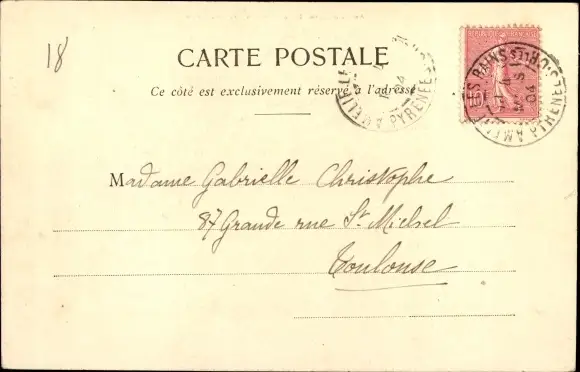 18
CARTE POSTALE
Ce côté est exclusivement réservé à l'adresse
REPUBLIQUE FRANÇAISE
10
04
Madame Gabrielle Christophe
87 Grande rue St Michel
Toulouse